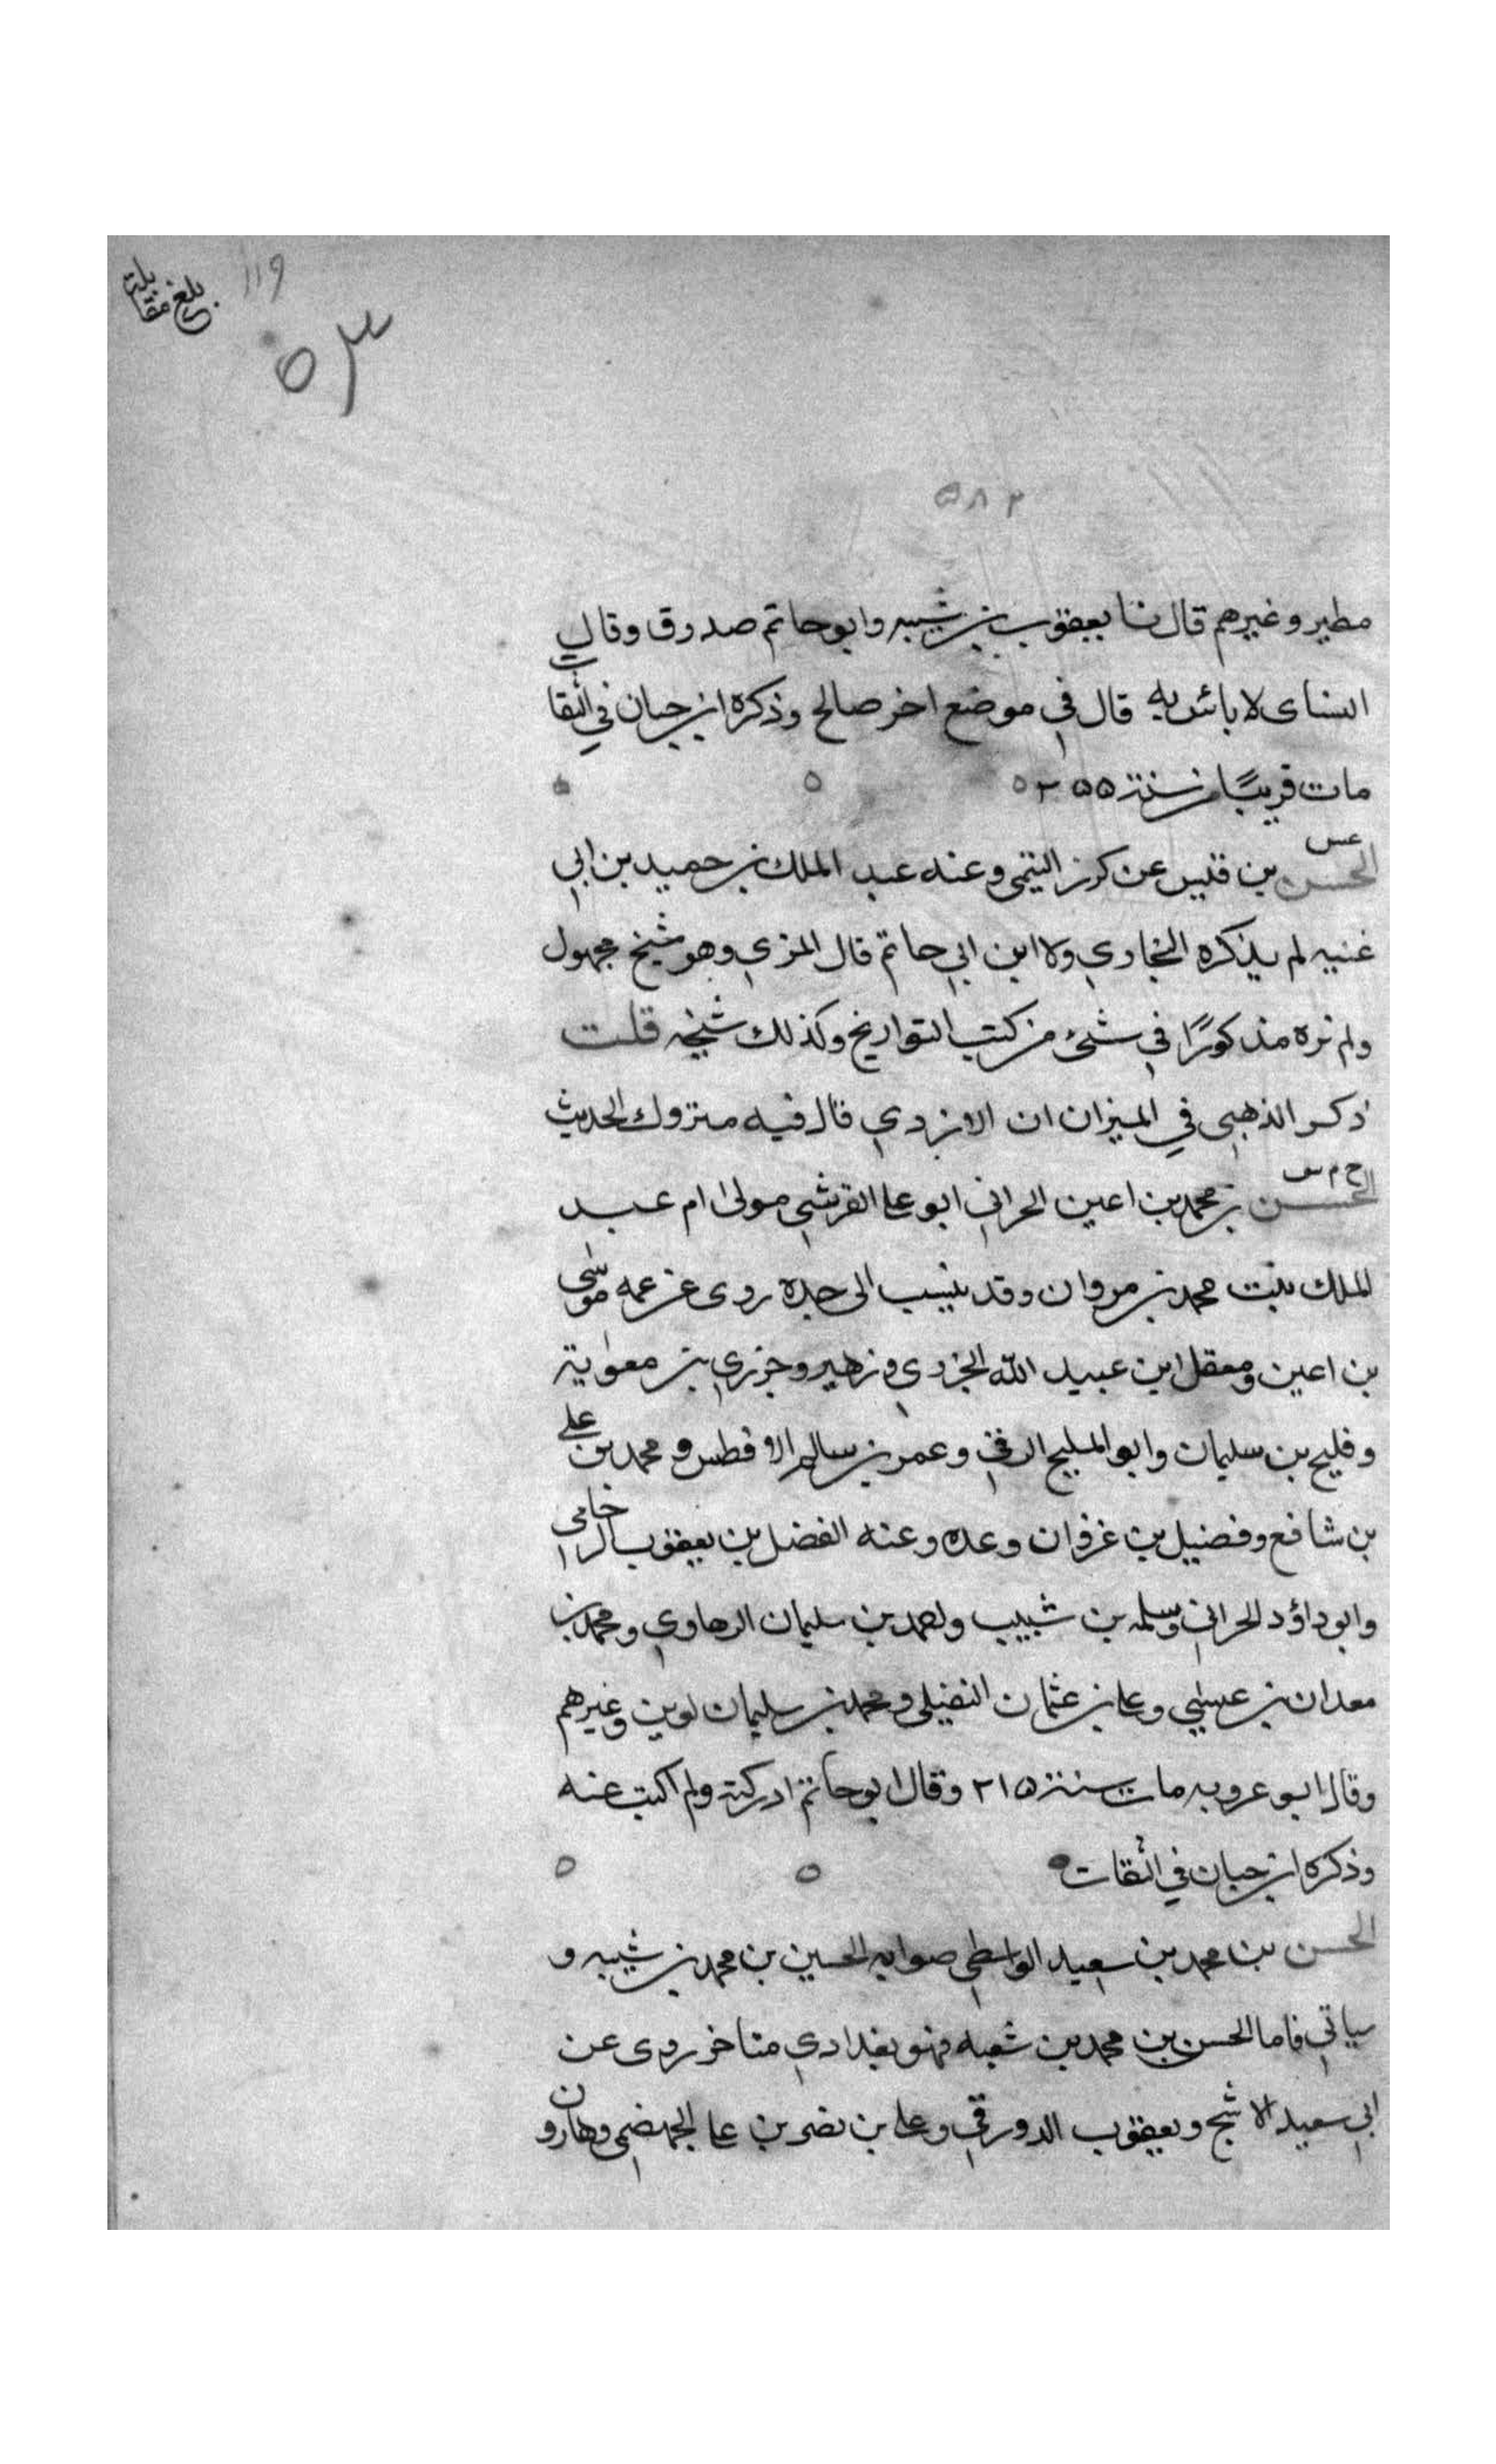 بلغ مقابلة
119
٥٣
٥٨٢
مطير وغيرهم قال نا يعقوب بن شيبه وابو حاتم صدوق وقال
النساى لا باس به قال في موضع اخر صالح وذكره ابن حبان في الثقات
مات قريبًا من سنة ٢٥٥
عس
الحسن بن قيس عن كرز التيمى وعنه عبد الملك بن حميد بن ابي
غنيه لم يذكره البخاري ولا ابن ابي حاتم قال المزي وهو شيخ مجهول
ولم نره مذكورًا في شئ من كتب التواريخ وكذلك شيخه قلت
ذكر الذهبى في الميزان ان الازدي قال فيه متروك الحديث
خ م س
الحسن بن محمد بن اعين الحراني ابو على القرشي مولى ام عبد
الملك بنت محمد بن مروان وقد ينسب الى جده روى عن عمه موسى
بن اعين ومعقل ابن عبيد الله الجزري وزهير وجزري بن معوية
وفليح بن سليمان وابو المليح الرقي وعمر بن سالم الافطس ومحمد بن علي
بن شافع وفضيل بن غزوان وعده وعنه الفضل بن يعقوب الرخامى
وابو داؤد الحراني وسلمه بن شبيب واحمد بن سليمان الرهاوي ومحمد بن
معدان بن عيسى وعلى بن عثمان النفيلى ومحمد بن سليمان لوين وغيرهم
وقال ابو عروبه مات سنة ٢١٥ وقال ابو حاتم ادركته ولم اكتب عنه
وذكره ابن حبان في الثقات
الحسن بن محمد بن سعيد الواسطي صوابه الحسين بن محمد بن شيبه و
سياتي فاما الحسن بن محمد بن شعبه فهو بغدادي متاخر روى عن
ابي سعيد الاشج ويعقوب الدورقي وعلى بن نصر بن على الجهضمى وهارون